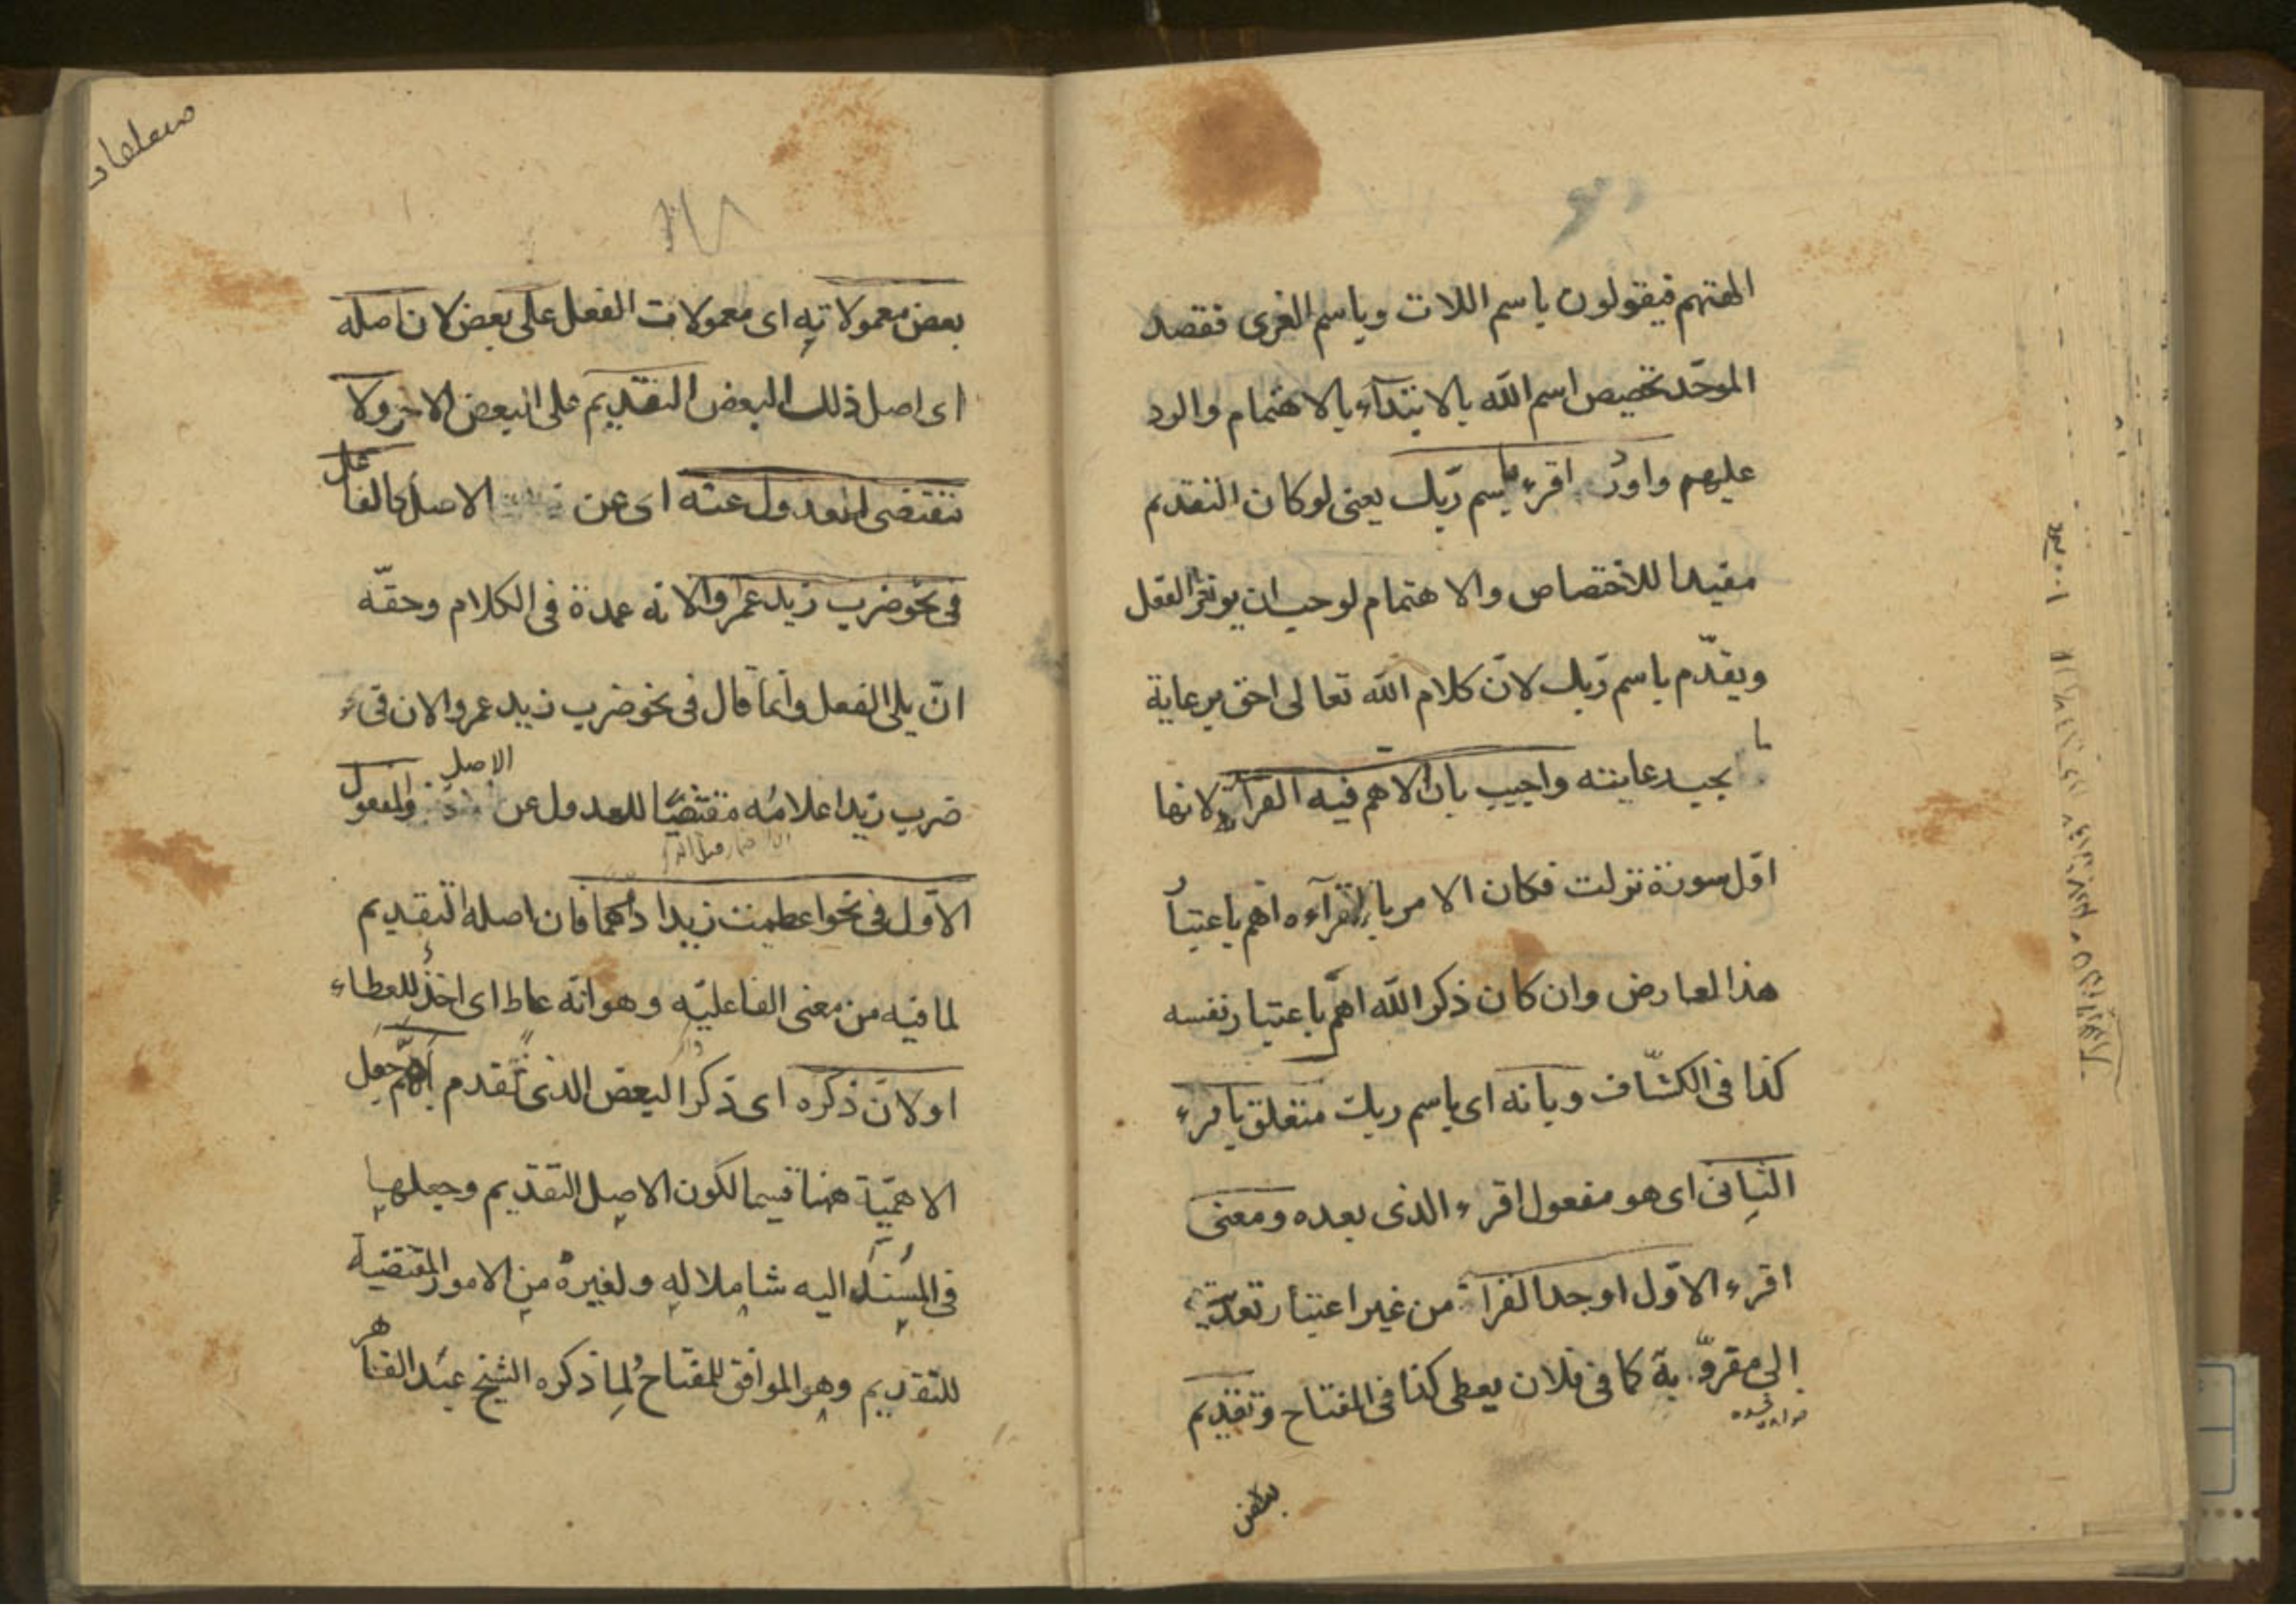 الهتهم فيقولون باسم اللات وباسم العزى فقصد
الموحّد تخصيص اسم الله بالابتدآء بالاهتمام والرد
عليهم واورد اقرء باسم ربّك يعنى لو كان التقديم
مفيدا للاختصاص والاهتمام لوجب ان يوخر الفعل
ويقدّم باسم ربّك لانّ كلام الله تعالى احق برعاية
ما يجب رعايته واجيب بان الاهم فيه القرآءة لانها
اوّل سورة نزلت فكان الامر بالقرآءه اهم باعتبار
هذا العارض وان كان ذكر الله اهمّ باعتبار نفسه
كذا فى الكشّاف وبانه اى باسم ربك متعلق باقرء
الثانى اى هو مفعول اقرء الذى بعده ومعنى
اقرء الاوّل اوجد القراءة من غير اعتبار تعديته
الى مقروّ به كما فى فلان يعطى كذا فى المفتاح وتقديم
بعض
بعض معمولاته اى معمولات الفعل على بعض لان اصله
اى اصل ذلك البعض التقديم على البعض الاخر ولا
مقتضى للعدول عنه اى عن الاصل كالفاعل
فى نحو ضرب زيد عمرا لانه عمدة فى الكلام وحقّه
انّ يلى الفعل وانّما قال فى نحو ضرب زيد عمروا لان فى
ضرب زيدا غلامُه مقتضيًا للعدول عن الاصل والمفعول
الاوّل فى نحو اعطيت زيدا درهما فان اصله التقديم
لما فيه من معنى الفاعليّه وهو انّه عاط اى اخذٌ للعطاء
او لانّ ذكره اى ذكر البعض الذى تقدم اهمّ جعل
الاهميّة ههنا قسيما لكون الاصل التقديم وجعلها
فى المسند اليه شاملا له ولغيره من الامور المقتضية
للتقديم وهو الموافق للمفتاح ولما ذكره الشيخ عبد القاهر